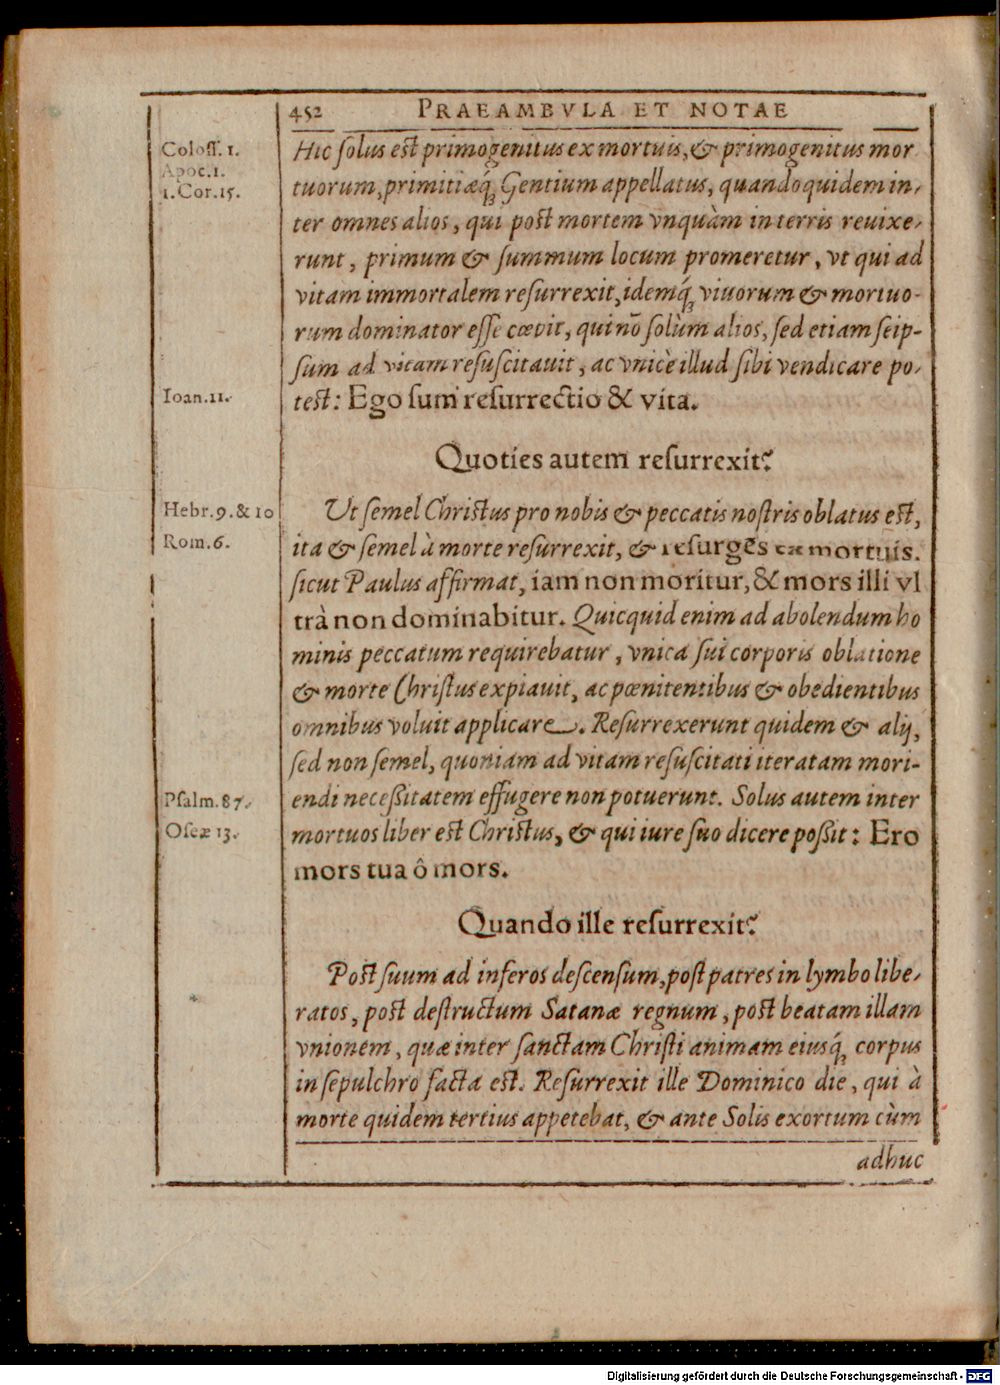 452 PRAEAMBVLA ET NOTAE
Coloſſ. 1.
Apoc.1.
1.Cor.15.
Hic ſolus eſt primogenitus ex mortuis, & primogenitus mor
tuorum, primitiæq́ꝫ Gentium appellatus, quandoquidem in-
ter omnes alios, qui poſt mortem vnquàm in terris reuixe-
runt, primum & ſummum locum promeretur, vt qui ad
vitam immortalem reſurrexit, idemq́ꝫ viuorum & mortuo-
rum dominator eſſe cœpit, qui nō ſolùm alios, ſed etiam ſeip-
ſum ad vitam reſuſcitauit, ac vnicè illud ſibi vendicare po-
Ioan.11.
teſt: Ego ſum reſurrectio & vita.
Quoties autem reſurrexit?
Hebr.9.& 10
Rom.6.
Ut ſemel Chriſtus pro nobis & peccatis noſtris oblatus eſt,
ita & ſemel à morte reſurrexit, & reſurgēs ex mortuis.
ſicut Paulus affirmat, iam non moritur, & mors illi vl
trà non dominabitur. Quicquid enim ad abolendum ho
minis peccatum requirebatur, vnica ſui corporis oblatione
& morte Chriſtus expiauit, ac pœnitentibus & obedientibus
omnibus voluit applicare. Reſurrexerunt quidem & alij,
ſed non ſemel, quoniam ad vitam reſuſcitati iteratam mori-
Pſalm.87.
Oſeæ 13.
endi neceſſitatem effugere non potuerunt. Solus autem inter
mortuos liber eſt Chriſtus, & qui iure ſuo dicere poſſit: Ero
mors tua ô mors.
Quando ille reſurrexit?
Poſt ſuum ad inferos deſcenſum, poſt patres in lymbo libe-
ratos, poſt deſtructum Satanæ regnum, poſt beatam illam
vnionem, quæ inter ſanctam Chriſti animam eiusq́ꝫ corpus
in ſepulchro facta eſt. Reſurrexit ille Dominico die, qui à
morte quidem tertius appetebat, & ante Solis exortum cùm
adhuc
Digitalisierung gefördert durch die Deutsche Forschungsgemeinschaft - DFG